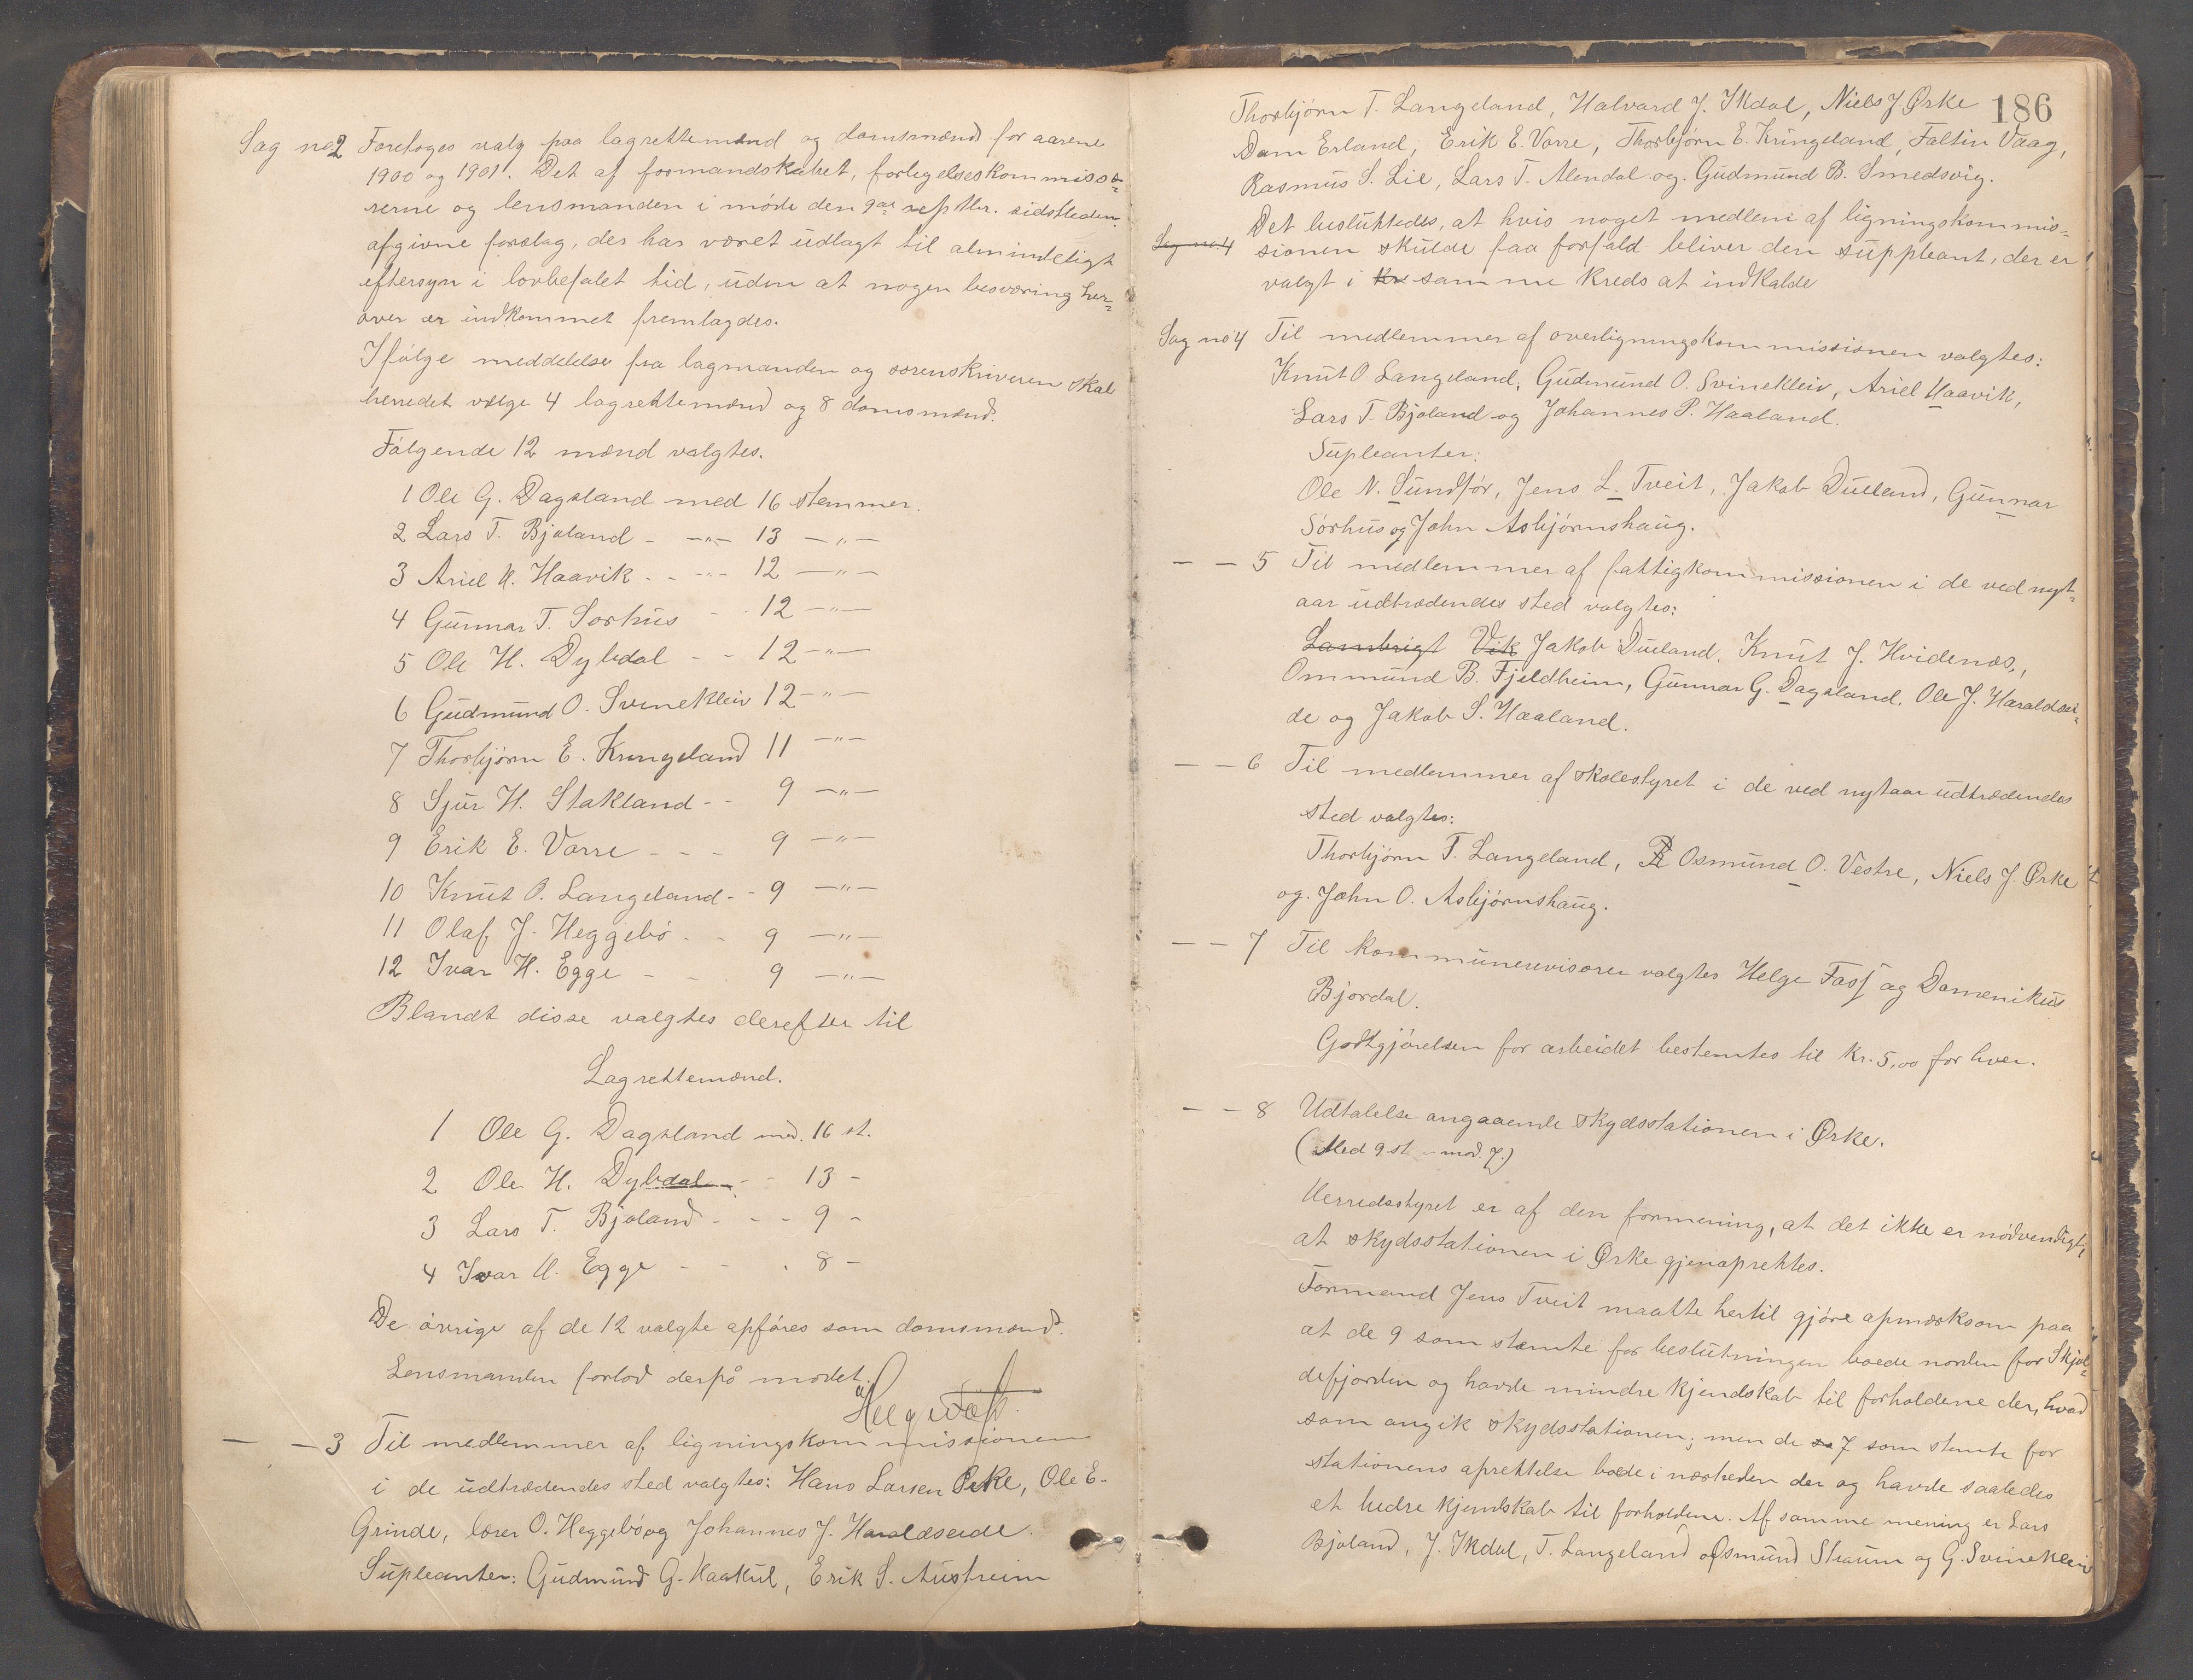 Sag no 2 Foretoges valg paa lagrettemænd og domsmænd for aarene
1900 og 1901. Det af formandskabet, forligelseskommissæ-
rerne og lensmanden i møde den 9de septbr. sidstleden
afgivne forslag, der har været udlagt til almindeligt
eftersyn i lovbefalet tid, uden at nogen besværing her-
over er indkommet fremlagdes.
Ifølge meddelelse fra lagmanden og sorenskriveren skal
herredet vælge 4 lagrettemænd og 8 domsmænd.
Følgende 12 mænd valgtes.
1 Ole G. Dagsland med 16 stemmer.
2 Lars T. Bjoland - —"— 13 —"—
3 Ariel H. Haavik - - —"— 12 —"—
4 Gunnar T. Sørhus - - 12 —"—
5 Ole H. Dybdal - - 12 —"—
6 Gudmund O. Svinekleiv 12 —"—
7 Thorbjørn E. Kringeland 11 —"—
8 Sjur H. Stakland - - 9 —"—
9 Erik E. Vorre - - - 9 —"—
10 Knut O. Langeland - - 9 —"—
11 Olaf J. Heggebø - - 9 —"—
12 Ivar H. Egge - - 9 —"—
Blandt disse valgtes derefter til
Lagrettemænd.
1 Ole G. Dagsland med. 16 st.
2 Ole H. Dybdal - - 13 -
3 Lars T. Bjoland - - - 9 -
4 Ivar H. Egge - - - 8 -
De øvrige af de 12 valgte opføres som domsmænd.
Lensmanden forlod derpå mødet.
Helge Fatt.
— - 3 Til medlemmer af ligningskommissionen
i de udtrædendes sted valgtes: Hans Larsen Ørke, Ole E.
Grinde, lærer O. Heggebø og Johannes J. Haraldseide.
Supleanter: Gudmund G. Haakul, Erik S. Austreim
186
Thorbjørn T. Langeland, Halvard J. Ikdal, Niels J. Ørke
Dam Erland, Erik E. Vorre, Thorbjørn E. Kringeland, Faltin Vaag,
Rasmus S. Lie, Lars T. Alendal og. Gudmund B. Smedsvig.
Det besluttedes, at hvis noget medlem af ligningskommis-
Sag no 4 sionen skulde faa forfald bliver den suppleant, der er
valgt i Kr samme Kreds at indkalde
Sag no 4 Til medlemmer af overligningskommissionen valgtes:
Knut O Langeland, Gudmund O. Svinekleiv, Ariel Haavik,
Lars T. Bjoland og Johannes P. Haaland.
Supleanter:
Ole N. Sundfør, Jens L. Tveit, Jakob Dueland, Gunnar
Sørhus og John Asbjørnshaug.
— — 5 Til medlemmer af fattigkommissionen i de ved nyt-
aar udtrædendes sted valgtes:
Lambrigt Vik Jakob Dueland, Knut J. Hvidenæs,
Ommund B. Fjeldheim, Gunnar G. Dagsland, Ole J. Haraldsei-
de og Jakob S. Haaland.
— — 6 Til medlemmer af skolestyret i de ved nytaar udtrædendes
sted valgtes:
Thorbjørn T. Langeland, Osmund O. Vestre, Niels J. Ørke
og. John O. Asbjørnshaug.
— — 7 Til kommunerevisorer valgtes Helge Fatt og Domenikus
Bjordal.
Godtgjørelsen for arbeidet bestemtes til Kr. 5,00 for hver.
— — 8 Udtalelse angaaende skydsstationen i Ørke.
(Med 9 st. - mod. 7.)
Herredsstyret er af den formening, at det ikke er nødvendigt,
at skydsstationen i Ørke gjenoprettes.
Formand Jens Tveit maatte hertil gjøre opmærksom paa
at de 9 som stemte for beslutningen boede norden for Skjol-
defjorden og havde mindre kjendskab til forholdene der, hvad
som angik skydsstationen; men de 7 som stemte for
stationens oprettelse boede i nærheden der og havde saaledes
et bedre kjendskab til forholdene. Af samme mening er Lars
Bjoland, J. Ikdal, T. Langeland Osmund Straum og G. Svinekleiv